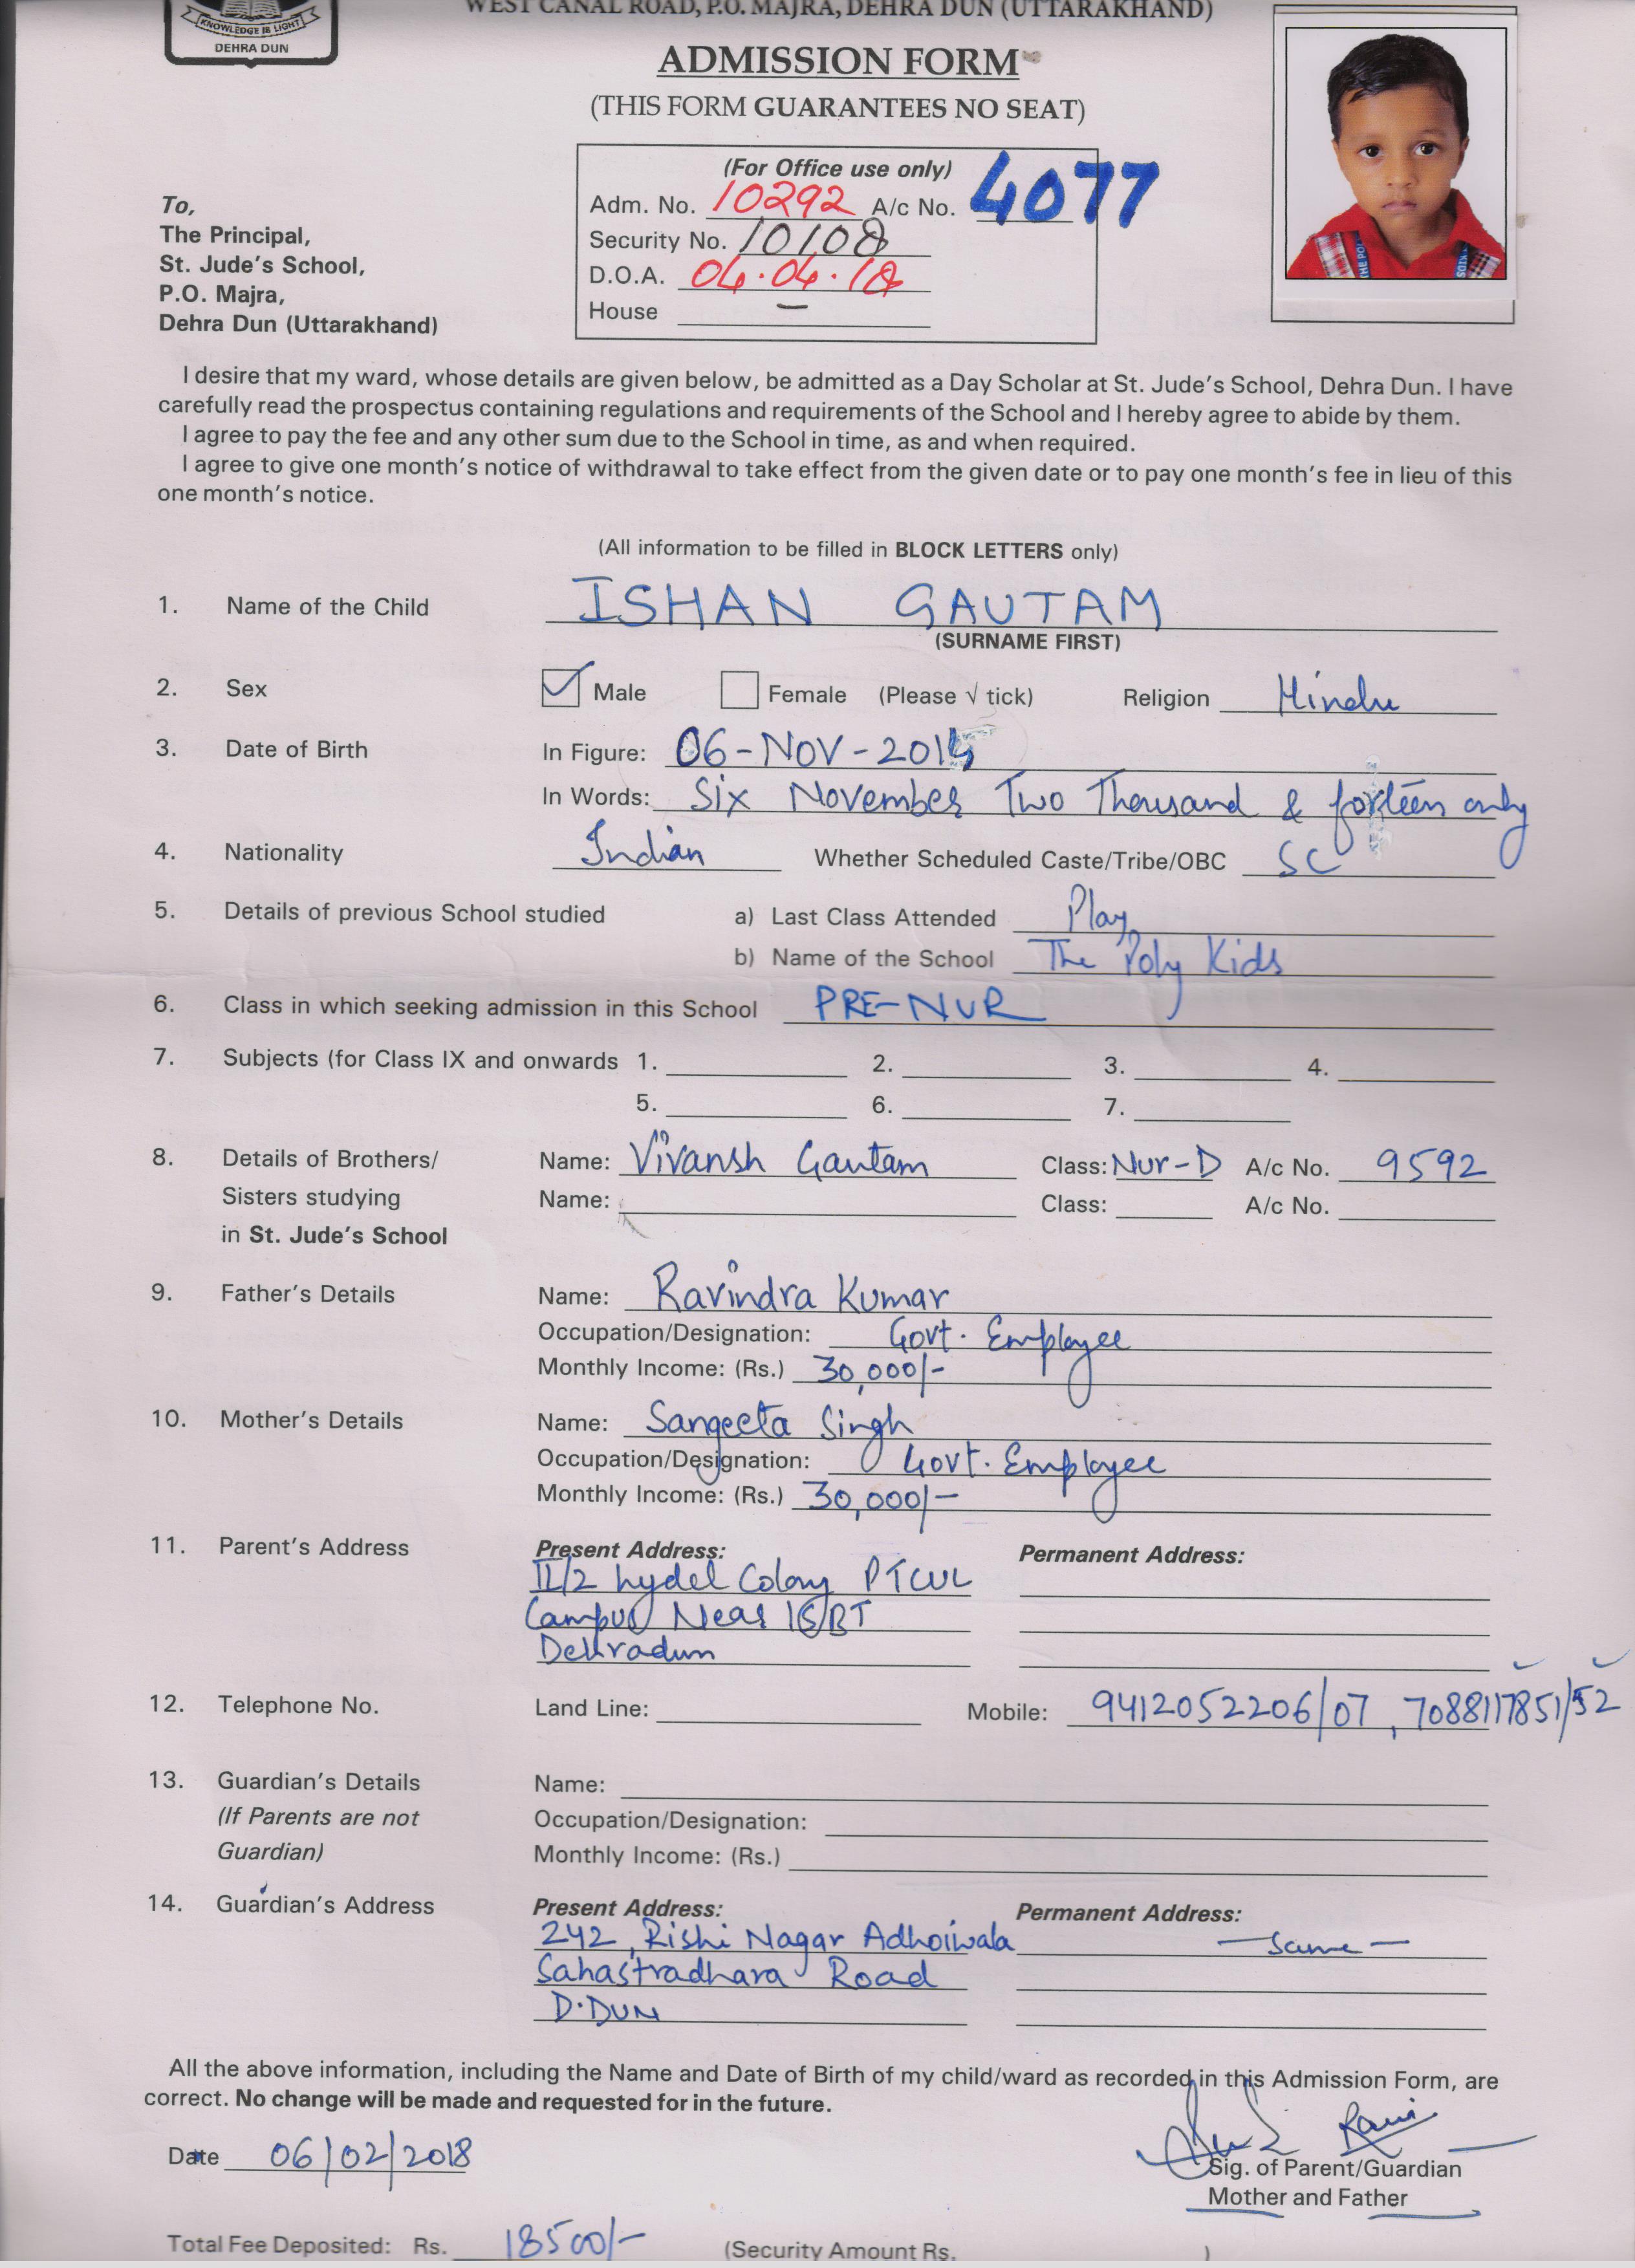 WEST CANAL ROAD, P.O. MAJRA, DEHRA DUN (UTTARAKHAND)
KNOWLEDGE IS LIGHT
DEHRA DUN
ADMISSION FORM
(THIS FORM GUARANTEES NO SEAT)
(For Office use only)
Adm. No. 10292 A/c No. 4077
Security No. 10108
D.O.A. 04.04.18
House –
To,
The Principal,
St. Jude's School,
P.O. Majra,
Dehra Dun (Uttarakhand)
I desire that my ward, whose details are given below, be admitted as a Day Scholar at St. Jude's School, Dehra Dun. I have
carefully read the prospectus containing regulations and requirements of the School and I hereby agree to abide by them.
I agree to pay the fee and any other sum due to the School in time, as and when required.
I agree to give one month's notice of withdrawal to take effect from the given date or to pay one month's fee in lieu of this
one month's notice.
(All information to be filled in BLOCK LETTERS only)
1. Name of the Child ISHAN GAUTAM
(SURNAME FIRST)
2. Sex Male Female (Please √ tick) Religion Hindu
3. Date of Birth In Figure: 06-NOV-
In Words: Six November Two Thousand & forteen only
4. Nationality Indian Whether Scheduled Caste/Tribe/OBC SC
5. Details of previous School studied a) Last Class Attended Play
b) Name of the School The Poly Kids
6. Class in which seeking admission in this School PRE-NUR
7. Subjects (for Class IX and onwards 1. 2. 3. 4.
5. 6. 7.
8. Details of Brothers/ Name: Vivansh Gautam Class: Nur-D A/c No. 9592
Sisters studying Name: Class: A/c No.
in St. Jude's School
9. Father's Details Name: Ravindra Kumar
Occupation/Designation: Govt. Employee
Monthly Income: (Rs.) 30,000/-
10. Mother's Details Name: Sangeeta Singh
Occupation/Designation: Govt. Employee
Monthly Income: (Rs.) 30,000/-
11. Parent's Address Present Address: Permanent Address:
II/2 hydel Colony PTCUL
Campus Near ISBT
Dehradun
12. Telephone No. Land Line: Mobile: 9412052206/07, 7088117851/52
13. Guardian's Details Name:
(If Parents are not Occupation/Designation:
Guardian) Monthly Income: (Rs.)
14. Guardian's Address Present Address: Permanent Address:
242, Rishi Nagar Adhoiwala – Same –
Sahastradhara Road
D.DUN
All the above information, including the Name and Date of Birth of my child/ward as recorded in this Admission Form, are
correct. No change will be made and requested for in the future.
Date 06/02/2018
Sig. of Parent/Guardian
Mother and Father
Total Fee Deposited: Rs. 18500/- (Security Amount Rs. )